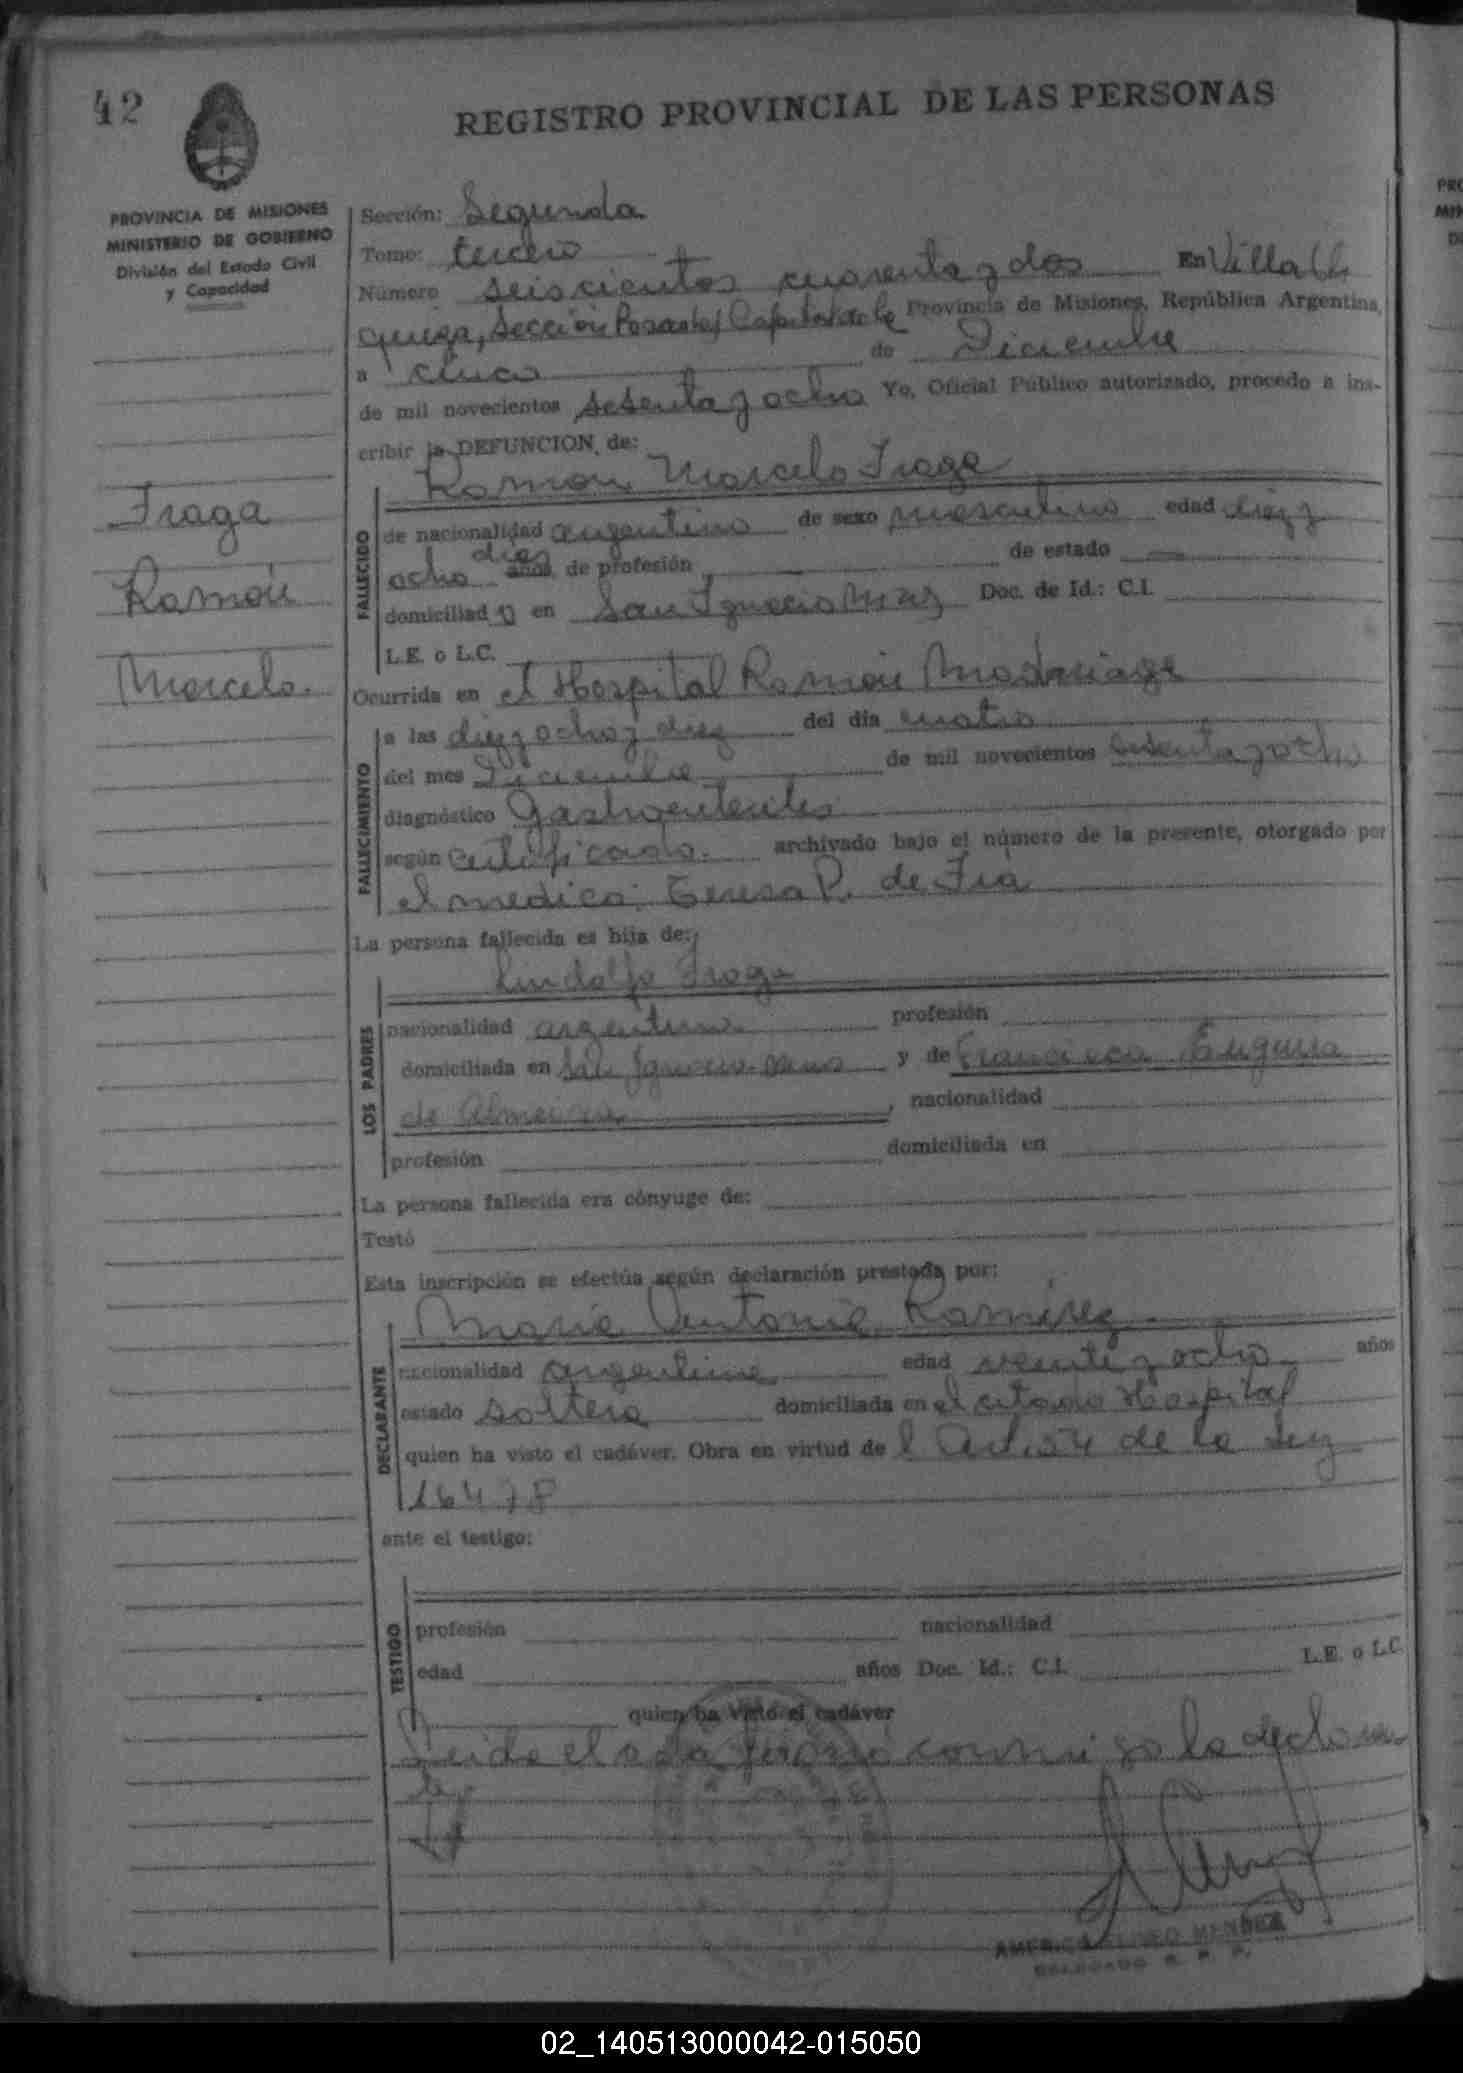 42
REGISTRO PROVINCIAL DE LAS PERSONAS
PROVINCIA DE MISIONES
MINISTERIO DE GOBIERNO
División del Estado Civil
y Capacidad
Fraga
Ramón
Marcelo.
Sección: Segunda
Tomo: tercero
Número seiscientos cuarenta y dos En Villa
Sección Posadas, Capital de la Provincia de Misiones, República Argentina,
a cinco de Diciembre
de mil novecientos sesenta y ocho Yo, Oficial Público autorizado, procedo a ins-
cribir la DEFUNCION, de:
Ramón Marcelo Fraga
FALLECIDO
de nacionalidad argentino de sexo masculino edad diez y
ocho días años, de profesión de estado
domiciliado en San Ignacio Doc. de Id.: C.I.
L.E. o L.C.
Ocurrida en el Hospital Ramón Madariaga
FALLECIMIENTO
a las diez y ocho y diez del día cuatro
del mes Diciembre de mil novecientos sesenta y ocho
diagnóstico Gastroenteritis
según certificado. archivado bajo el número de la presente, otorgado por
el médico: Teresa P. de Fra
La persona fallecida es hija de:
Lindolfo Fraga
LOS PADRES
nacionalidad argentino profesión
domiciliada en San Ignacio y de Francisca
de Almeida, nacionalidad
profesión domiciliada en
La persona fallecida era cónyuge de:
Testó
Esta inscripción se efectúa según declaración prestada por:
María Antonia Ramírez
DECLARANTE
nacionalidad argentina edad veinte y ocho años
estado soltera domiciliada en el citado Hospital
quien ha visto el cadáver. Obra en virtud de l Art. 54 de la Ley
16478
ante el testigo:
TESTIGO
profesión nacionalidad
edad años Doc. Id.: C.I. L.E. o L.C.
quien ha visto el cadáver
Leída el acta firmó conmigo la declaran
te
MENDEZ
DELEGADO R. P. P.
02_140513000042-015050